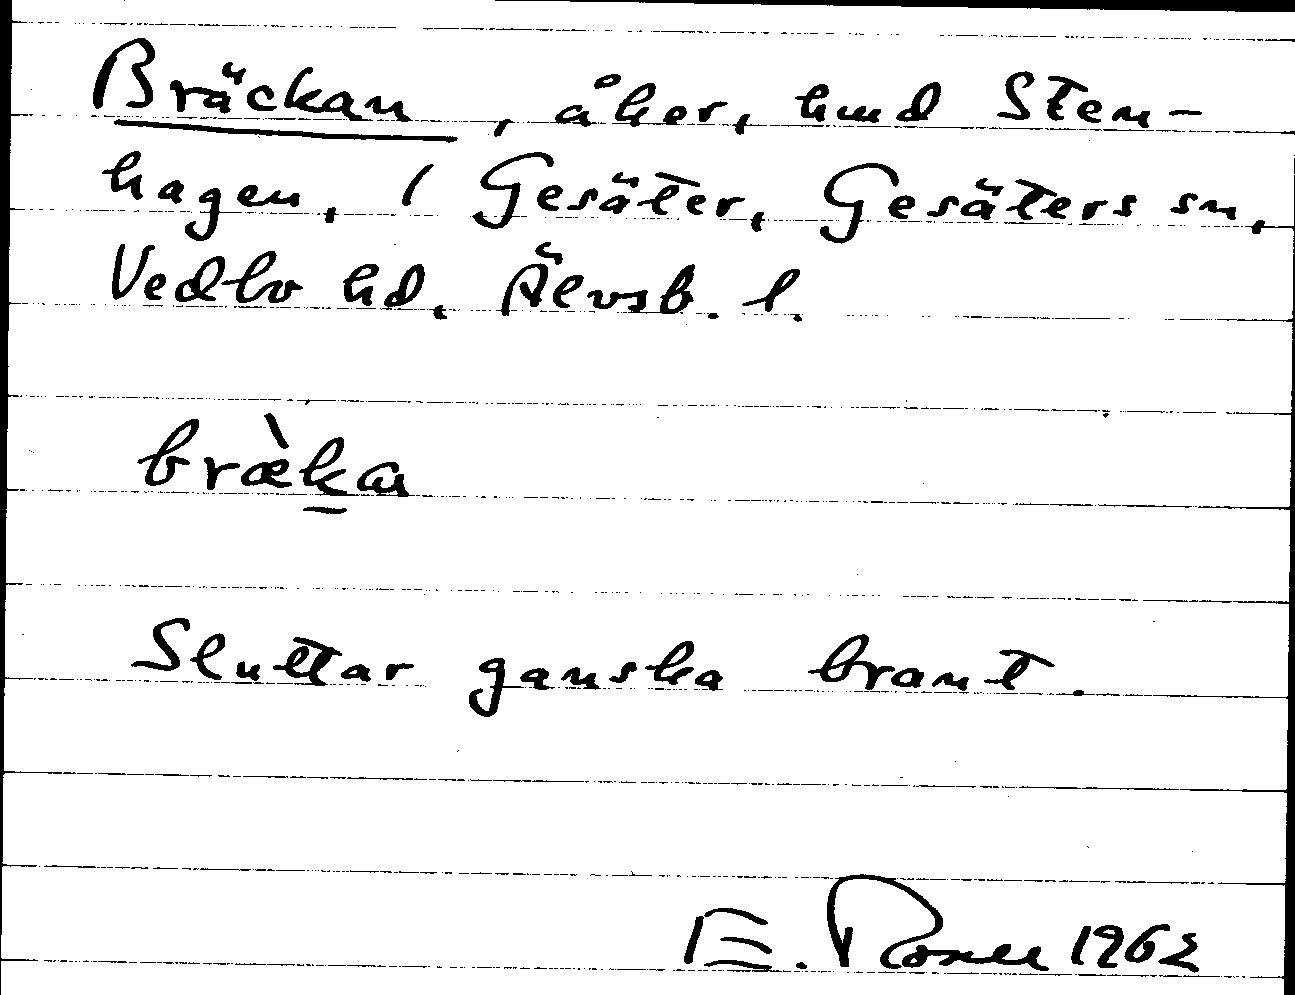 Bräckan, åker, hmd Sten-
hagen, 1 Gesäter, Gesäters sn,
Vedbo hd, Älvsb. l.
bræ̀k̠a
Sluttar ganska brant.
E. 1962